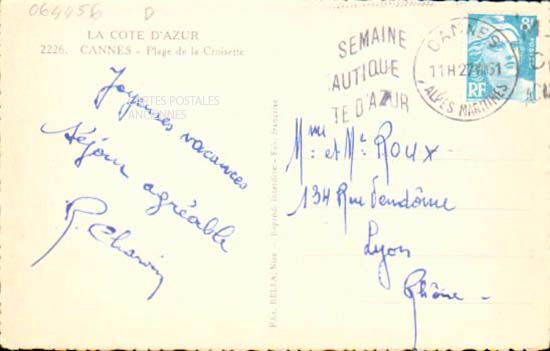 064456 D
LA COTE D'AZUR
2226. CANNES - Plage de la Croisette
Joyeuses vacances
Séjour agréable
CARTES POSTALES
ANCIENNES
SEMAINE
AUTIQUE
TE D'AZUR
CANNES
11H 27
51
ALPES MARITIMES
8F
RF
Mme et Mr Roux
134 Rue Vendôme
Lyon
Rhône
Reprod. Interdite - Fab. française